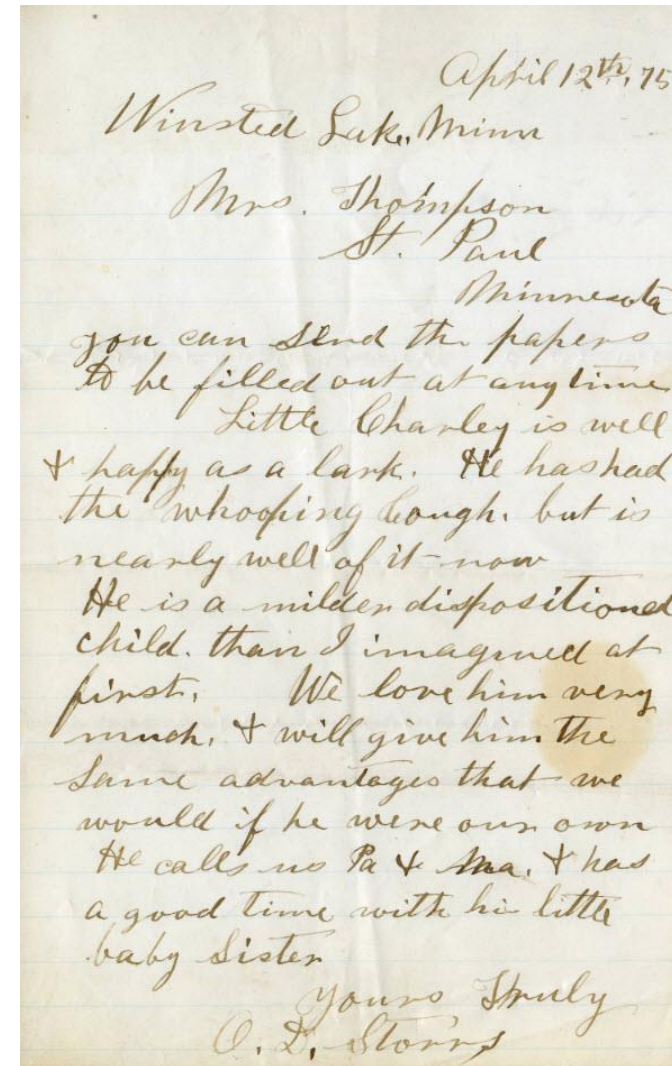 April 12th, 75
Winsted Lake, Minn
Mrs. Thompson
St. Paul
Minnesota
you can send the papers
to be filled out at any time
Little Charley is well
& happy as a lark. He has had
the whooping Cough. but is
nearly well of it now
He is a milder dispositioned
child. than I imagined at
first. We love him very
much, & will give him the
same advantages that we
would if he were our own
He calls us Pa & Ma. & has
a good time with his little
baby Sister
Yours Truly
O. D. Storrs